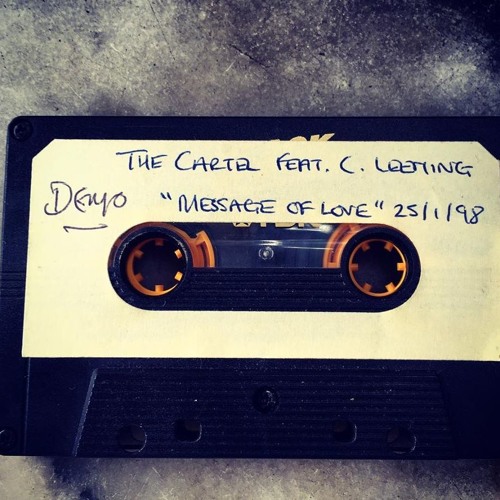 THE CARTEL FEAT. C. LEEMING
DEMO "MESSAGE OF LOVE" 25/1/98
TDK